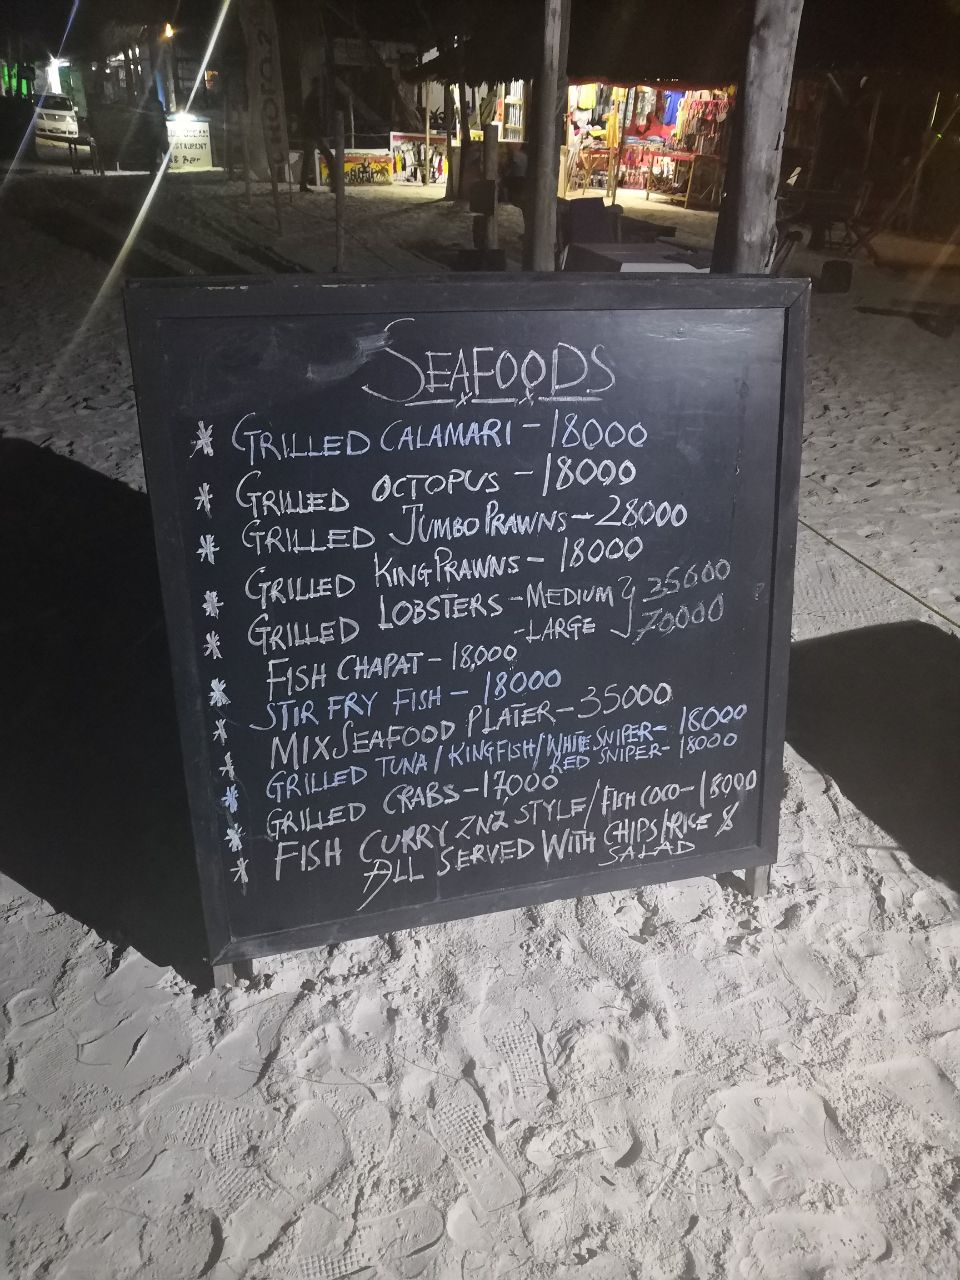 RESTAURANT
& BAR
SEAFOODS
* GRILLED CALAMARI - 18000
* GRILLED OCTOPUS - 18000
* GRILLED JUMBO PRAWNS - 28000
* GRILLED KING PRAWNS - 18000
* GRILLED LOBSTERS - MEDIUM } 35000
- LARGE } 70000
* FISH CHAPAT - 18,000
* STIR FRY FISH - 18000
* MIX SEAFOOD PLATER - 35000
* GRILLED TUNA / KINGFISH / WHITE SNIPER - 18000
RED SNIPER - 18000
* GRILLED CRABS - 17,000
* FISH CURRY ZNZ STYLE / FISH COCO - 18000
ALL SERVED WITH CHIPS / RICE &
SALAD